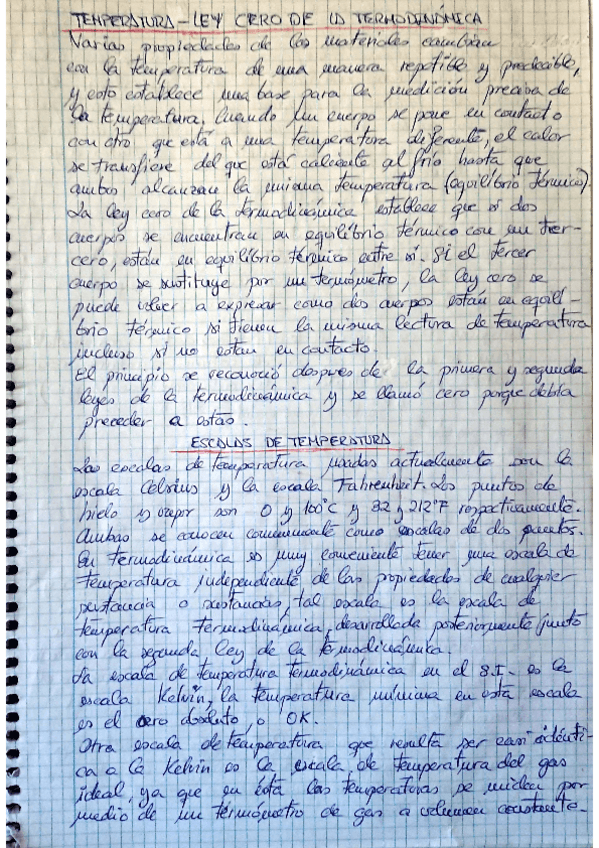 TEMPERATURA - LEY CERO DE LA TERMODINÁMICA
Varias propiedades de los materiales cambian
con la temperatura de una manera repetible y predecible,
y esto establece una base para la medición precisa de
la temperatura. Cuando un cuerpo se pone en contacto
con otro que está a una temperatura diferente, el calor
se transfiere del que está caliente al frío hasta que
ambos alcanzan la misma temperatura (equilibrio térmico).
La ley cero de la termodinámica establece que si dos
cuerpos se encuentran en equilibrio térmico con un ter-
cero, están en equilibrio térmico entre sí. Si el tercer
cuerpo se sustituye por un termómetro, la ley cero se
puede volver a expresar como dos cuerpos están en equili-
brio térmico si tienen la misma lectura de temperatura
incluso si no están en contacto.
El principio se reconoció después de la primera y segunda
leyes de la termodinámica y se llamó cero porque debía
preceder a estas.
ESCALAS DE TEMPERATURA
Las escalas de temperatura usadas actualmente son la
escala Celsius y la escala Fahrenheit. Los puntos de
hielo y vapor son 0 y 100°C y 32 y 212°F respectivamente.
Ambas se conocen comúnmente como escalas de dos puntos.
En termodinámica es muy conveniente tener una escala de
temperatura independiente de las propiedades de cualquier
sustancia o sustancias, tal escala es la escala de
temperatura termodinámica, desarrollada posteriormente junto
con la segunda ley de la termodinámica.
La escala de temperatura termodinámica en el S.I. es la
escala Kelvin, la temperatura mínima en esta escala
es el cero absoluto, o 0K.
Otra escala de temperatura que resulta ser casi idénti-
ca a la Kelvin es la escala de temperatura del gas
ideal, ya que en ésta las temperaturas se miden por
medio de un termómetro de gas a volumen constante.